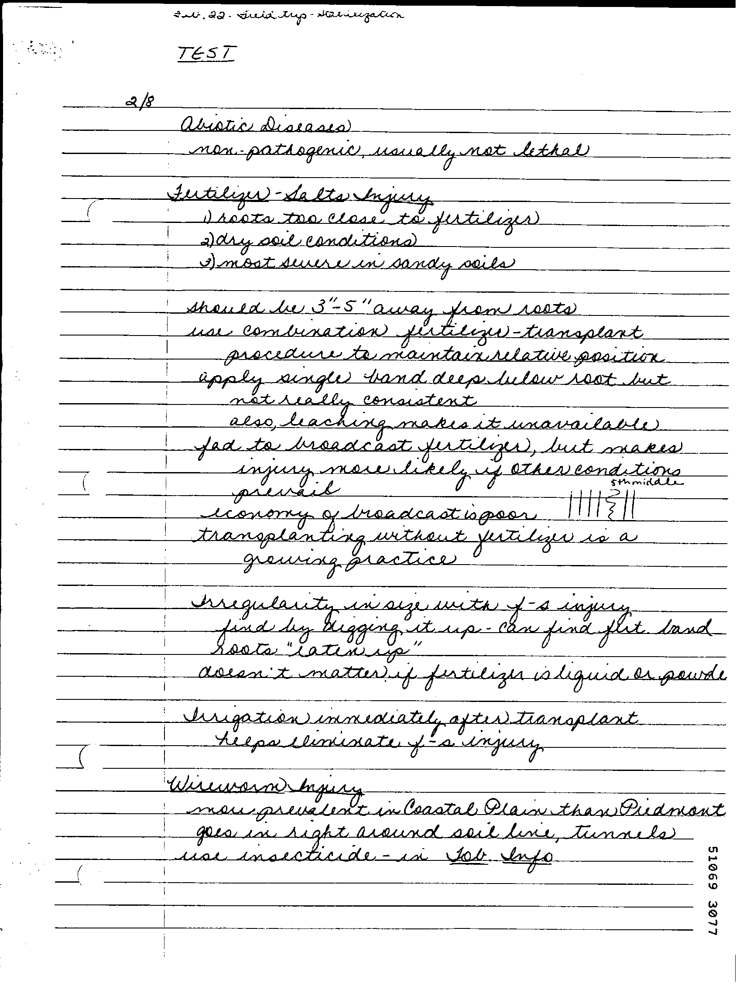 Feb. 22 - Field trip - steamization
TEST
2/8
Abiotic Diseases
non-pathogenic, usually not lethal
Fertilizer-Salts Injury
1) roots too close to fertilizer
2) dry soil conditions
3) most severe in sandy soils
should be 3"-5" away from roots
use combination fertilizer-transplant
procedure to maintain relative position
apply single band deep below root but
not really consistent
also, leaching makes it unavailable
fad to broadcast fertilizer, but makes
injury more likely if other conditions
prevail
5th middle
economy of broadcast is poor
transplanting without fertilizer is a
growing practice
Irregularity in size with f-s injury
find by digging it up - can find flrt. band
roots "eaten up"
doesn't matter if fertilizer is liquid or powde
Irrigation immediately after transplant
helps eliminate f-s injury
Wireworm Injury
more prevalent in Coastal Plain than Piedmont
goes in right around soil line, tunnels
use insecticide - in Tob. Info
51069 3077